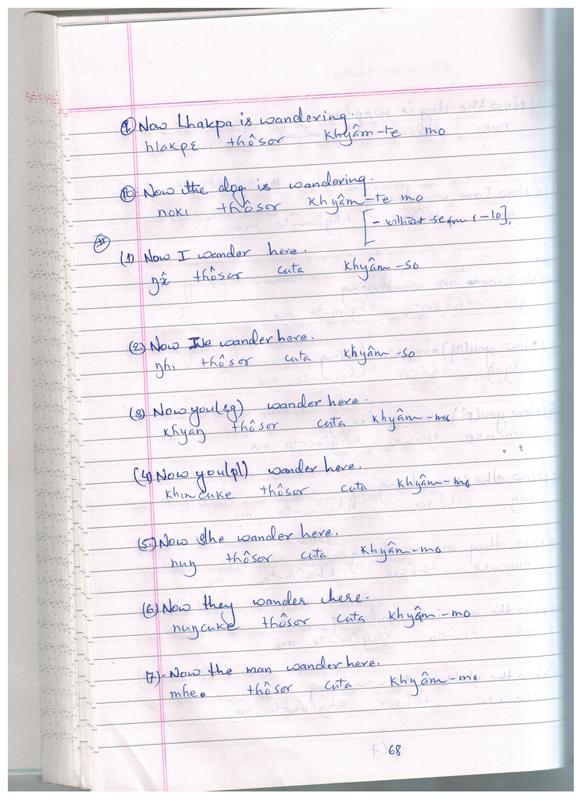 (9) Now Lhakpa is wandering.
hlakpɛ thôsor khyâm-te mo
(10) Now the dog is wandering.
noki thôsor khyâm-te mo
[- without se from 1-10].
(1) Now I wander here.
thôsor cuta khyâm-so
(2) Now We wander here.
ŋhi thôsor cuta khyâm-so
(3) Now you(sg) wander here.
khyaŋ thôsor cuta khyâm-mo
(4) Now you(pl) wander here.
khincuke thôsor cuta khyâm-mo
(5) Now She wander here.
nuŋ thôsor cuta khyâm-mo
(6) Now they wander here.
nuŋcuke thôsor cuta khyâm-mo
7). Now the man wander here.
mhe thôsor cuta khyâm-mo
68